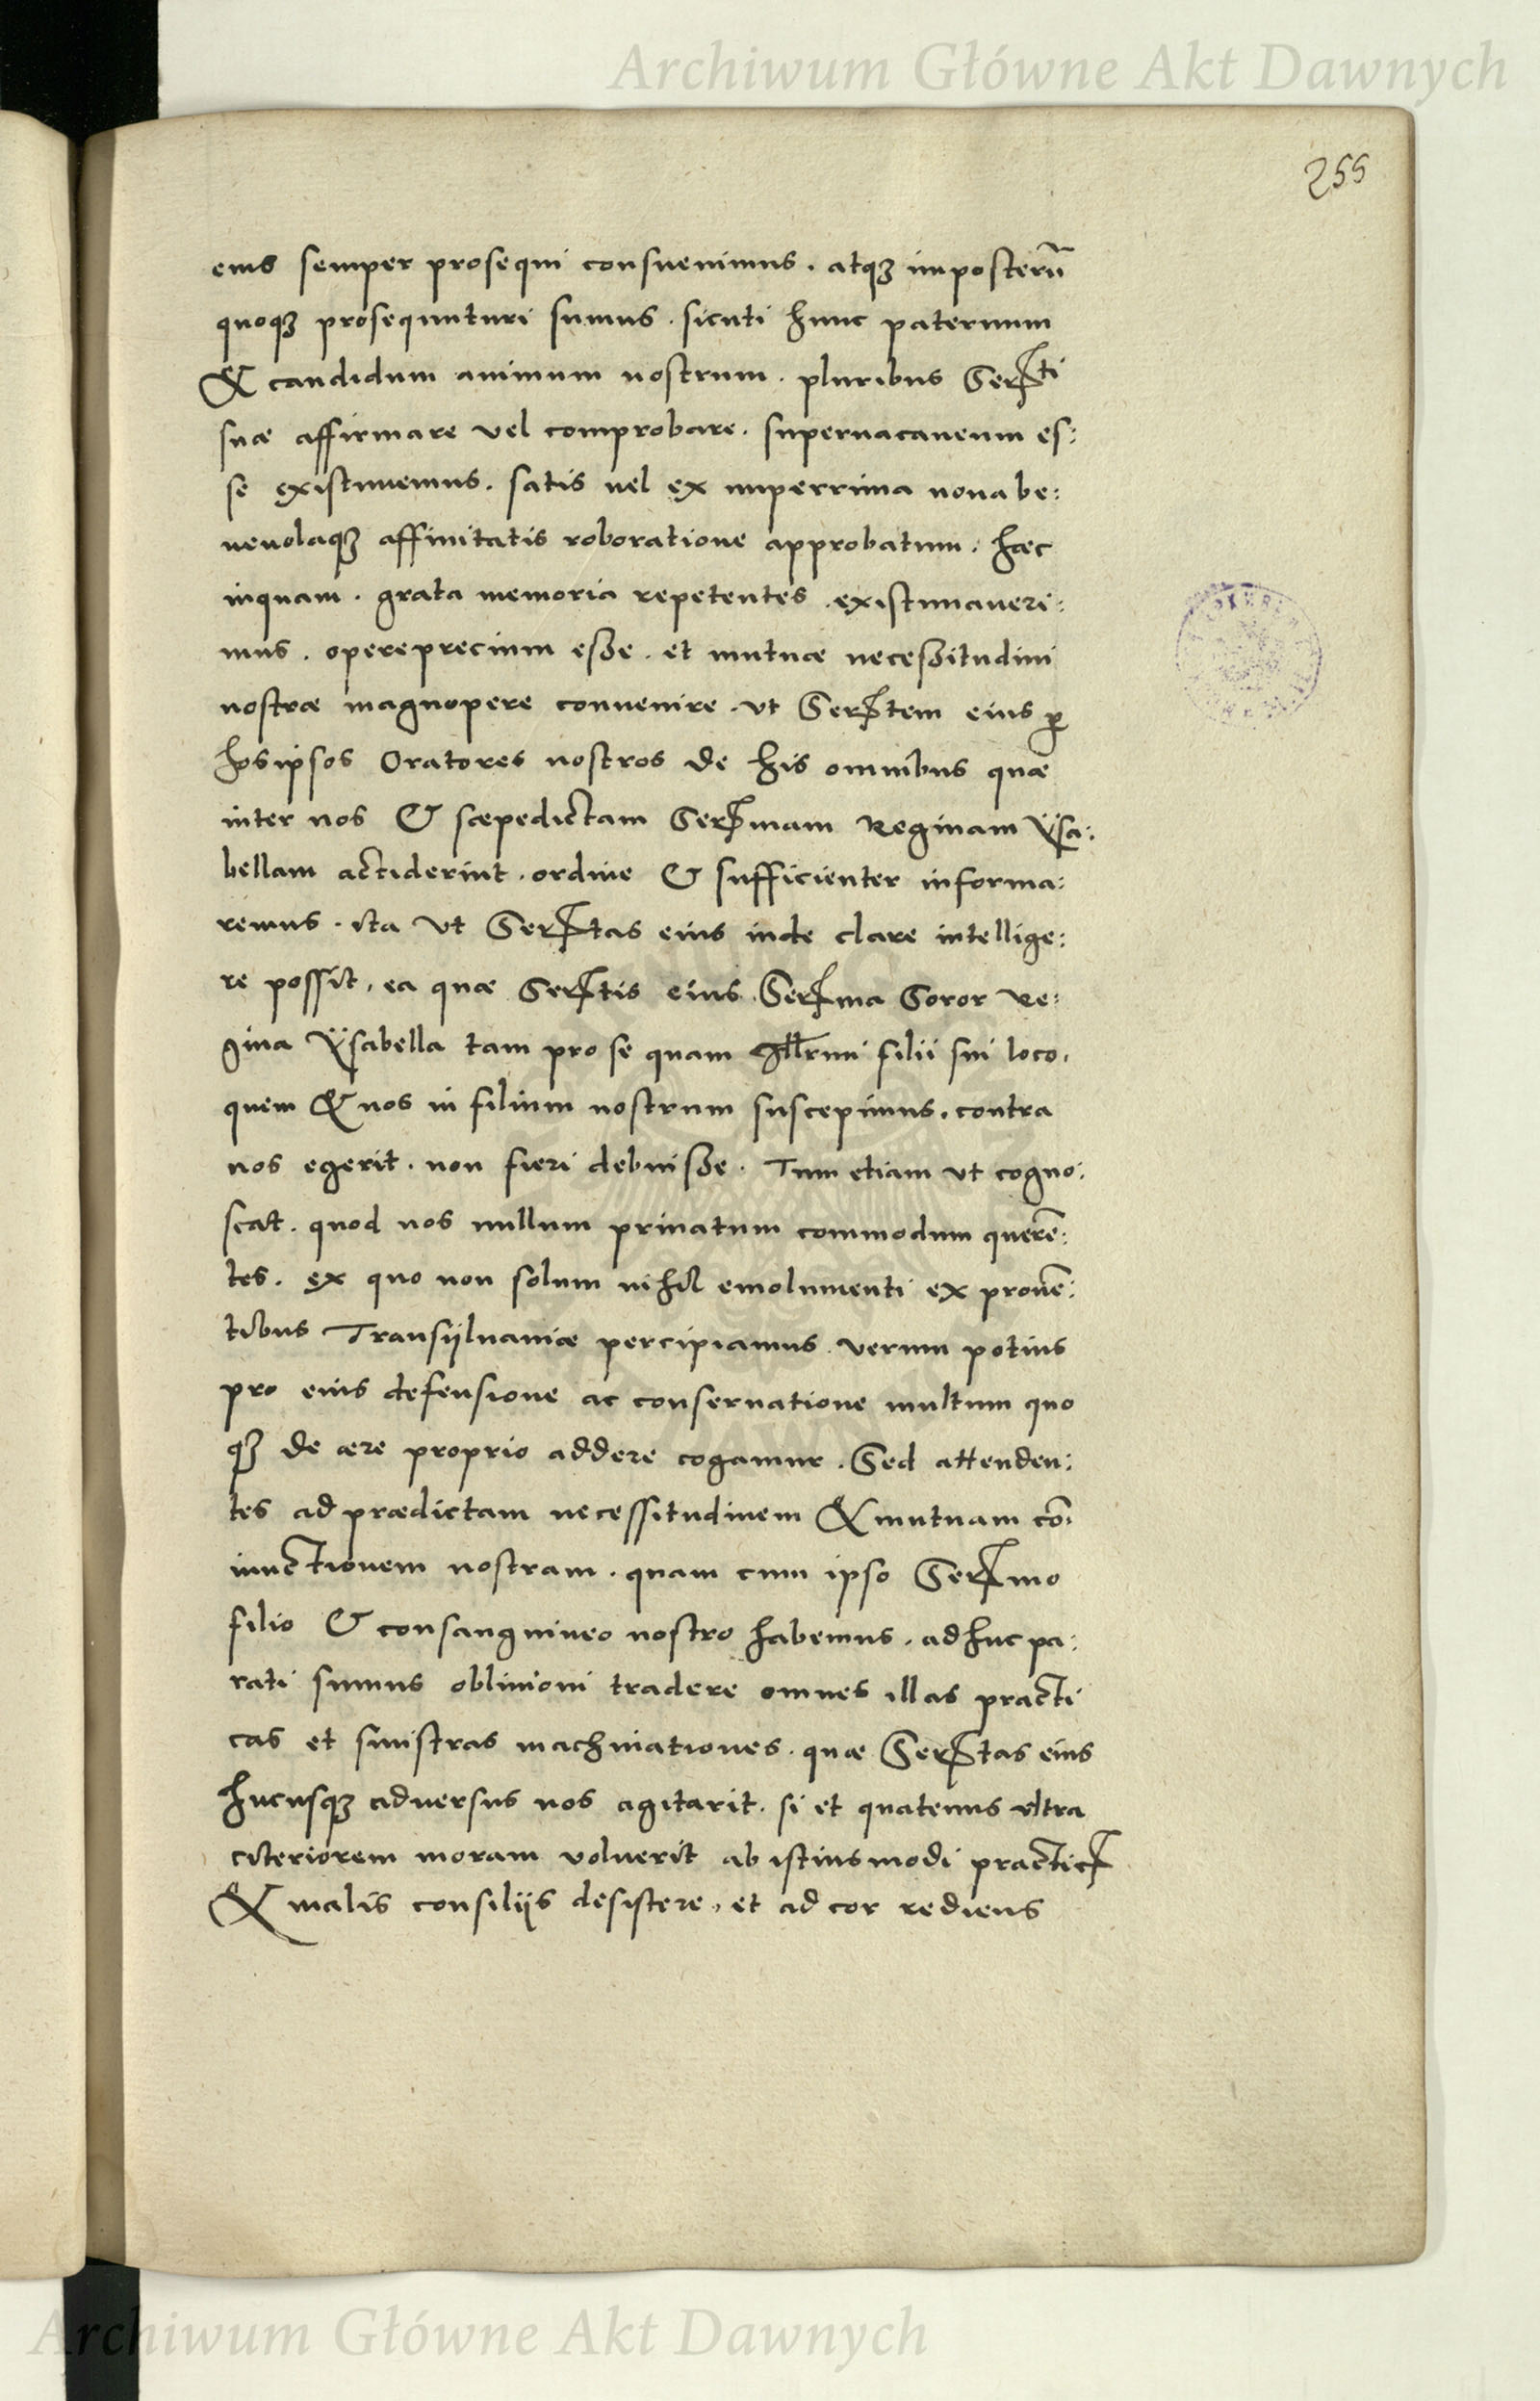 Archiwum Główne Akt Dawnych
255
eius semper prosequi consuevimus. atqꝫ imposterū
quoqꝫ prosequuturi sumus. sicuti hunc paternum
& candidum animum nostrum. pluribus Serᵗⁱ
suæ affirmare vel comprobare. supervacaneum es:
se existimemus. satis vel ex nuperrima nova be:
nevolaqꝫ affinitatis roboratione approbatum. hæc
inquam. grata memoria repetentes. existimavere:
mus. opereprecium esße. et mutuæ neceßitudini
nostræ magnopere convenire. ut Serᵗem eius ꝑ
hos ipsos Oratores nostros de his omnibus quæ
inter nos & sæpedictam Serᵐam Reginam Ÿsa:
bellam acciderint. ordine & sufficienter informa:
remus. ita ut Sertas eius inde clare intellige:
re possit, ea quæ Sertis eius Serma Soror Re:
gina Ÿsabella tam pro se quam Illrmi filii sui loco.
quem & nos in filium nostrum suscepimus. contra
nos egerit. non fieri debuisße. Tum etiam ut cogno:
scat. quod nos nullum privatum commodum querē:
tes. ex quo non solum nihil emolumenti ex provē:
tibus Transÿlvaniæ percipiamus. verum potius
pro eius defensione ac conservatione multum quo
qꝫ de ære proprio addere cogamur. Sed attenden:
tes ad prædictam necessitudinem & mutuam cō:
iunctionem nostram. quam cum ipso Sermo
filio & consanguineo nostro habemus. adhuc pa:
rati sumus oblivioni tradere omnes illas practi
cas et sinistras machinationes. quæ Sertas eius
hucusqꝫ adversus nos agitarit. si et quatenus ultra
citeriorem moram voluerit ab istiusmodi practicꝭ
& malis consilijs desistere, et ad cor rediens
Archiwum Główne Akt Dawnych